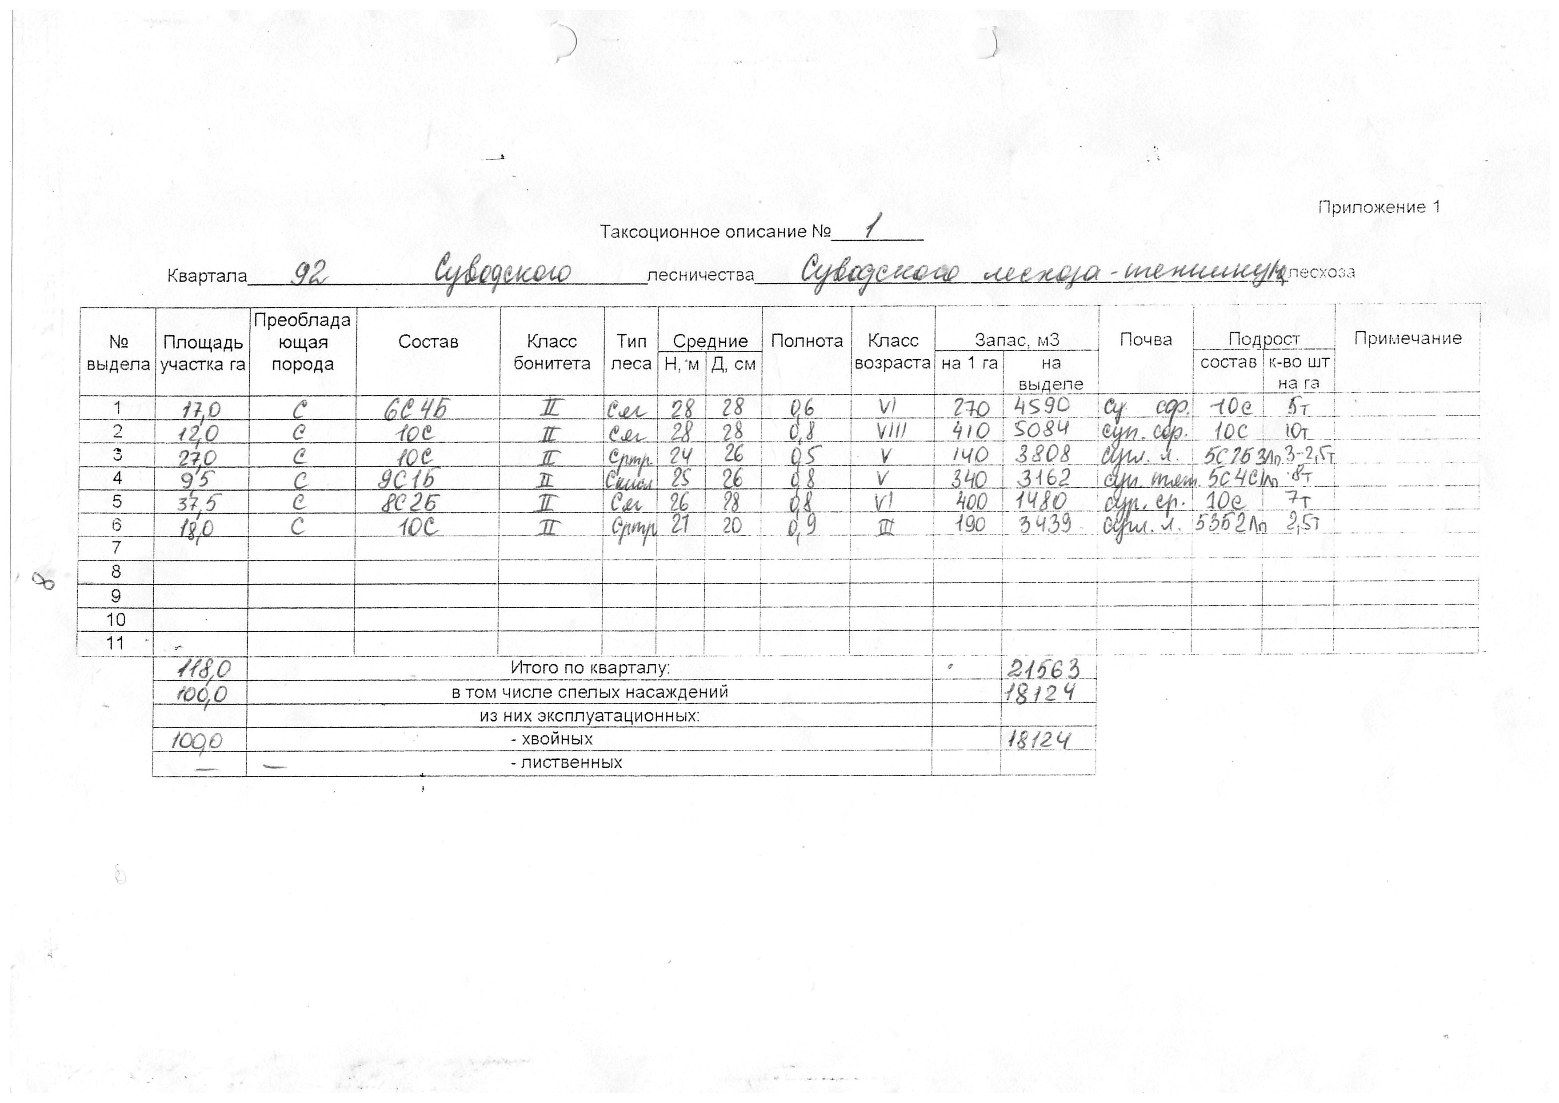 Приложение 1
Таксоционное описание № 1
Квартала 92 Суводского лесничества Суводского лесхоза-техникум лесхоза
№ выдела Площадь участка га Преобладающая порода Состав Класс бонитета Тип леса Средние Н, м Д, см Полнота Класс возраста Запас, м3 на 1 га на выделе Почва Подрост состав к-во шт на га Примечание
1 17,0 С 6С4Б II Сяг 28 28 0,6 VI 270 4590 Су сфр. 10с 5т
2 12,0 С 10С II Сяг 28 28 0,8 VIII 410 5084 суп. сфр. 10С 10т
3 27,0 С 10С II Сртр. 24 26 0,5 V 140 3808 сугл. л. 5С2Б3Лп 3-2,5т
4 9,5 С 9С1Б II 25 26 0,8 V 340 3162 8т
5 37,5 С 8С2Б II Сяг 26 28 0,8 VI 400 1480 ср. 10с 7т
6 18,0 С 10С II Сртр 21 20 0,9 III 190 3439 сугл. л. 2,5т
7
8
9
10
11
118,0 Итого по кварталу: 21563
100,0 в том числе спелых насаждений 18124
из них эксплуатационных:
100,0 - хвойных 18124
— — - лиственных
8